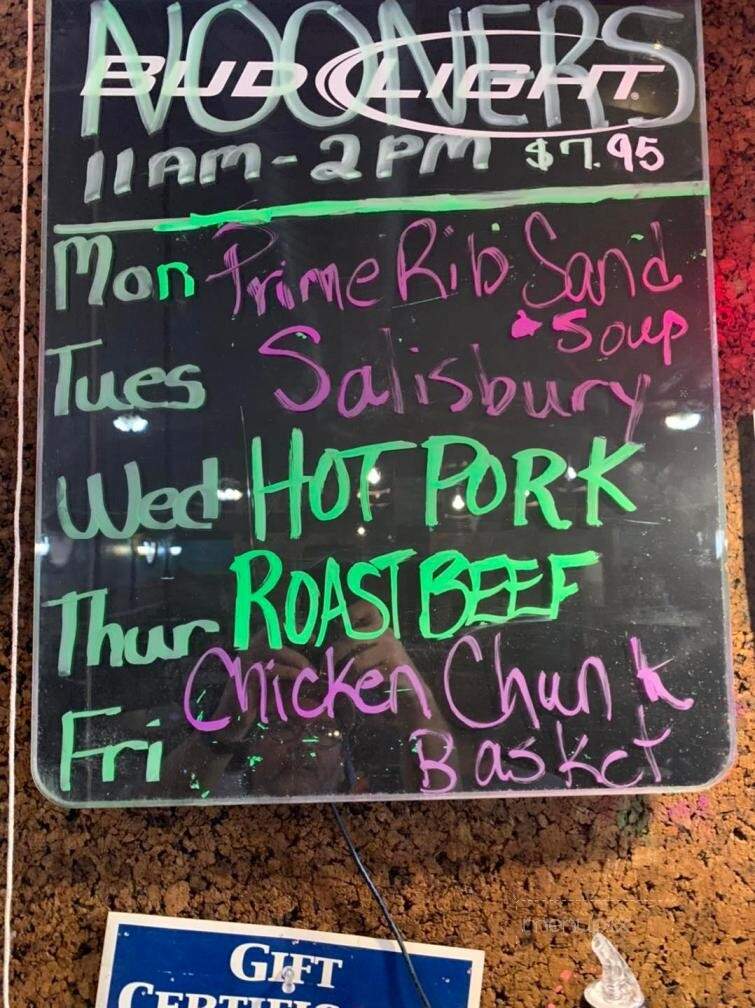 NOONERS
BUD LIGHT
11AM - 2PM $7.95
Mon Prime Rib Sand
• Soup
Tues Salisbury
Wed HOT PORK
Thur ROAST BEEF
Fri Chicken Chunk
Basket
GIFT